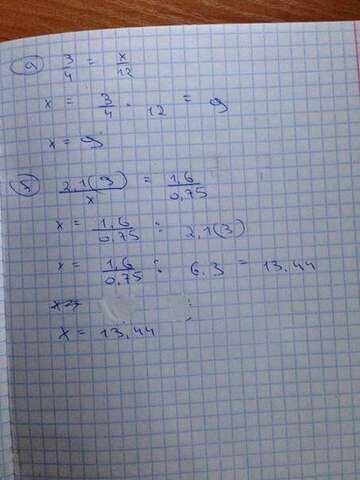 a) 3/4 = x/12
x = 3/4 · 12 = 9
x = 9
b) 2,1(3)/x = 1,6/0,75
x = 1,6/0,75 : 2,1(3)
x = 1,6/0,75 : 6.3 = 13,44
x = 13,44